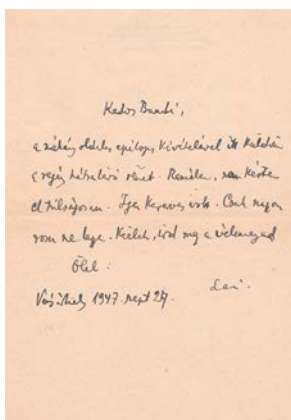 Kedves Bandi,
a néhány oldalas epilógus kivételével itt küldöm
a regény hátralévő részét. Remélem, nem késtem
el túlságosan. Igen keserves volt. Csak nagyon
rossz ne legyen. Kérlek, írd meg a véleményed
Ölel:
Laci
Vásárhely 1947. szept 27.